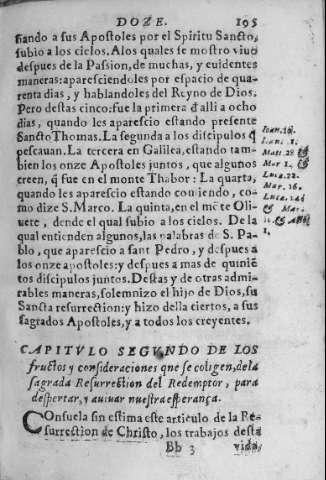 DOZE. 195
ſiando a sus Apostoles por el Spiritu Sancto,
subio a los cielos. A los quales se mostro viuo
despues de la Passion, de muchas, y euidentes
maneras: apareſciendoles por espacio de qua-
renta dias, y hablandoles del Reyno de Dios.
Pero destas cinco: fue la primera d̃ alli a ocho
dias, quando les apareſcio estando presente
Sancto Thomas. La segunda a los discipulos q̃
pescauan. La tercera en Galilea, estando tam-
bien los onze Apostoles juntos, que algunos
creen, q̃ fue en el monte Thabor: La quarta,
quando les apareſcio estando comiendo, co-
mo dize S. Marco. La quinta, en el mõte Oli-
uete, dende el qual subio a los cielos. De la
qual entienden algunos, las palabras de S. Pa-
blo, que apareſcio a sant Pedro, y despues a
los onze apostoles: y despues a mas de quiniẽ
tos discipulos juntos. Destas y de otras admi-
rables maneras, solemnizo el hijo de Dios, su
Sancta resurrection: y hizo della ciertos, a sus
sagrados Apostoles, y a todos los creyentes.
Ioan. 20.
Ioan. 1.
Matt. 28. &
Mar 1. &
Luca. 22.
Mar. 16.
Luca. 24.
& Mar.
1.
CAPITVLO SEGVNDO DE LOS
fructos y consideraciones que se coligen, de la
sagrada Resurrection del Redemptor, para
despertar, y auiuar nuestra esperança.
COnsuela sin estima este articulo de la Re-
surrection de Christo, los trabajos desta
Bb 3 vida,